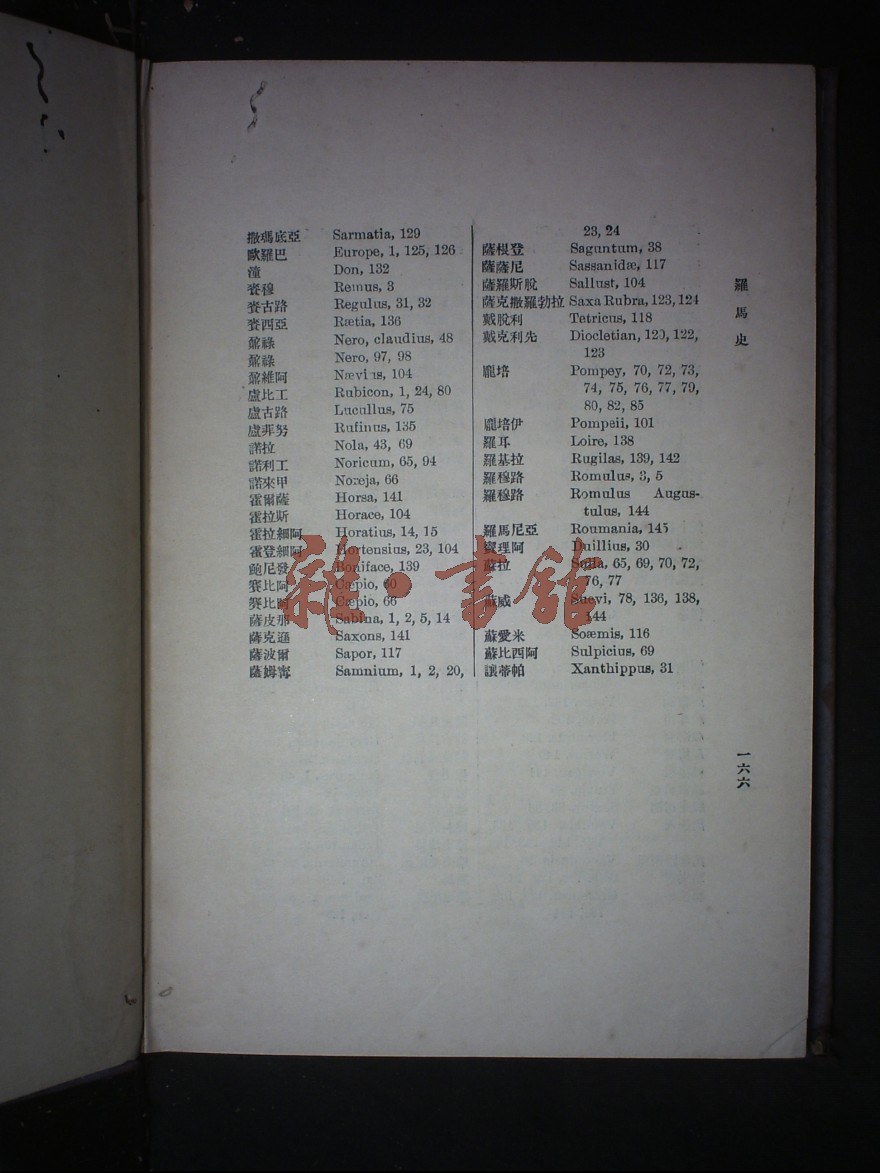 撒瑪底亞 Sarmatia, 129
歐羅巴 Europe, 1, 125, 126
潼 Don, 132
Remus, 3
Regulus, 31, 32
Rætia, 136
Nero, claudius, 48
Nero, 97, 98
Nævius, 104
盧比工 Rubicon, 1, 24, 80
盧古路 Lucullus, 75
盧菲努 Rufinus, 135
諾拉 Nola, 43, 69
諾利工 Noricum, 65, 94
諾來甲 Noreja, 66
霍爾薩 Horsa, 141
霍拉斯 Horace, 104
霍拉細阿 Horatius, 14, 15
霍登細阿 Hortensius, 23, 104
鮑尼發 Boniface, 139
賽比阿 Cæpio, 60
賽比阿 Cæpio, 66
薩皮那 Sabina, 1, 2, 5, 14
薩克遜 Saxons, 141
薩波爾 Sapor, 117
薩姆甯 Samnium, 1, 2, 20,
23, 24
薩根登 Saguntum, 38
薩薩尼 Sassanidæ, 117
薩羅斯脫 Sallust, 104
薩克撒羅勃拉 Saxa Rubra, 123, 124
戴脫利 Tetricus, 118
戴克利先 Diocletian, 120, 122,
123
龐培 Pompey, 70, 72, 73,
74, 75, 76, 77, 79,
80, 82, 85
龐培伊 Pompeii, 101
羅耳 Loire, 138
羅基拉 Rugilas, 139, 142
羅穆路 Romulus, 3, 5
羅穆路 Romulus Augus-
tulus, 144
羅馬尼亞 Roumania, 145
理阿 Duillius, 30
蘇拉 Sulla, 65, 69, 70, 72,
76, 77
蘇威 Suevi, 78, 136, 138,
144
蘇愛米 Soæmis, 116
蘇比西阿 Sulpicius, 69
讓蒂帕 Xanthippus, 31
羅馬史
一六六
雜·書館